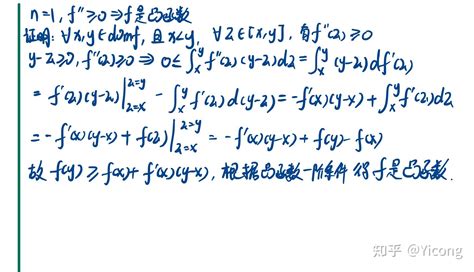 n=1, f''≥0 ⇒ f是凸函数
证明: ∀x,y∈domf, 且x<y, ∀z∈[x,y], 有f''(z)≥0
y-z≥0, f''(z)≥0 ⇒ 0≤∫_x^y f''(z)(y-z)dz=∫_x^y (y-z)df'(z)
= f'(z)(y-z)|_{z=x}^{z=y} - ∫_x^y f'(z)d(y-z) = -f'(x)(y-x)+∫_x^y f'(z)dz
= -f'(x)(y-x)+f(z)|_{z=x}^{z=y} = -f'(x)(y-x)+f(y)-f(x)
故f(y)≥f(x)+f'(x)(y-x), 根据凸函数一阶条件得f是凸函数.
知乎 @Yicong